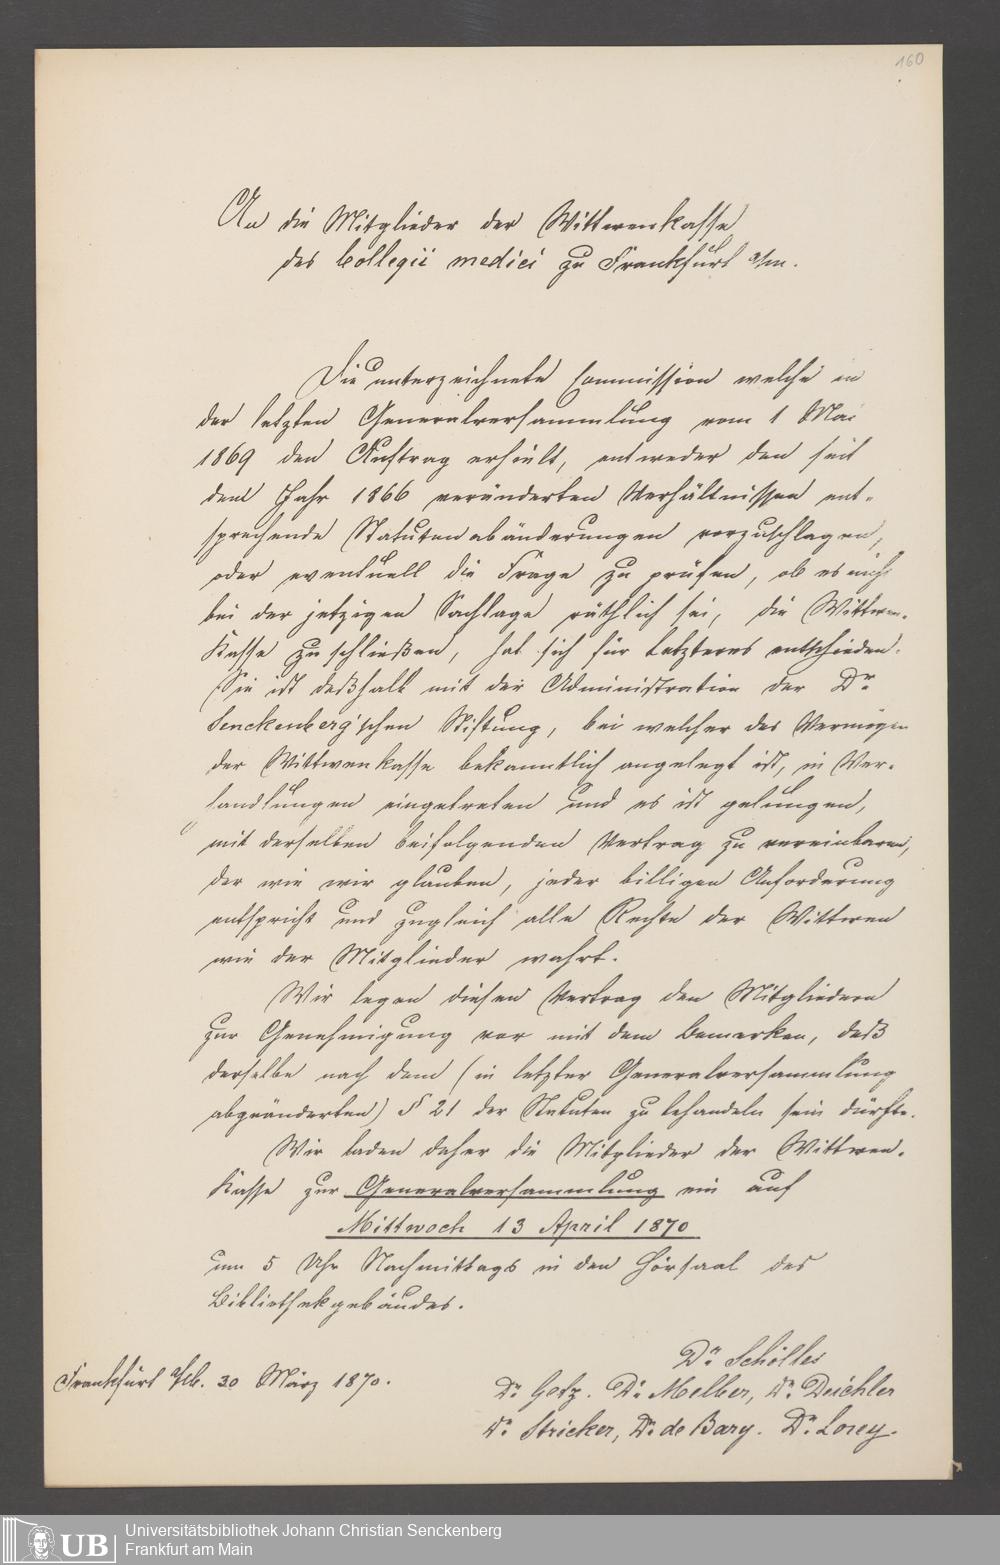 160
An die Mitglieder der Wittwenkasse
des Collegii medici zu Frankfurt a/m.
Die unterzeichnete Commission welche in
der letzten Generalversammlung vom 1 Mai
1869 den Auftrag erhielt, entweder den seit
dem Jahr 1866 veränderten Verhältnissen ent-
sprechende Statutenabänderungen vorzuschlagen,
oder eventuell die Frage zu prüfen, ob es nicht
bei der jetzigen Sachlage räthlich sei, die Wittwen-
Kasse zu schließen, hat sich für Letzteres entschieden.
Sie ist deßhalb mit der Administration der Dr
Senckenberg'schen Stiftung, bei welcher das Vermögen
der Wittwenkasse bekanntlich angelegt ist, in Ver-
handlungen eingetreten und es ist gelungen,
mit derselben beifolgenden Vertrag zu vereinbaren,
der wie wir glauben, jeder billigen Anforderung
entspricht und zugleich alle Rechte der Wittwen
wie der Mitglieder wahrt.
Wir legen diesen Vertrag den Mitgliedern
zur Genehmigung vor mit dem Bemerken, daß
derselbe nach dem (in letzter Generalversammlung
abgeänderten) § 21 der Statuten zu behandeln sein dürfte.
Wir laden daher die Mitglieder der Wittwen-
Kasse zur Generalversammlung ein auf
Mittwoch 13 April 1870
um 5 Uhr Nachmittags in den Hörsaal des
Bibliothekgebäudes.
Frankfurt 30 März 1870.
Dr Schölles
Dr Getz. Dr Melber, Dr Deichler
Dr Stricker, Dr de Bary. Dr Lorey.
UB
Universitätsbibliothek Johann Christian Senckenberg
Frankfurt am Main